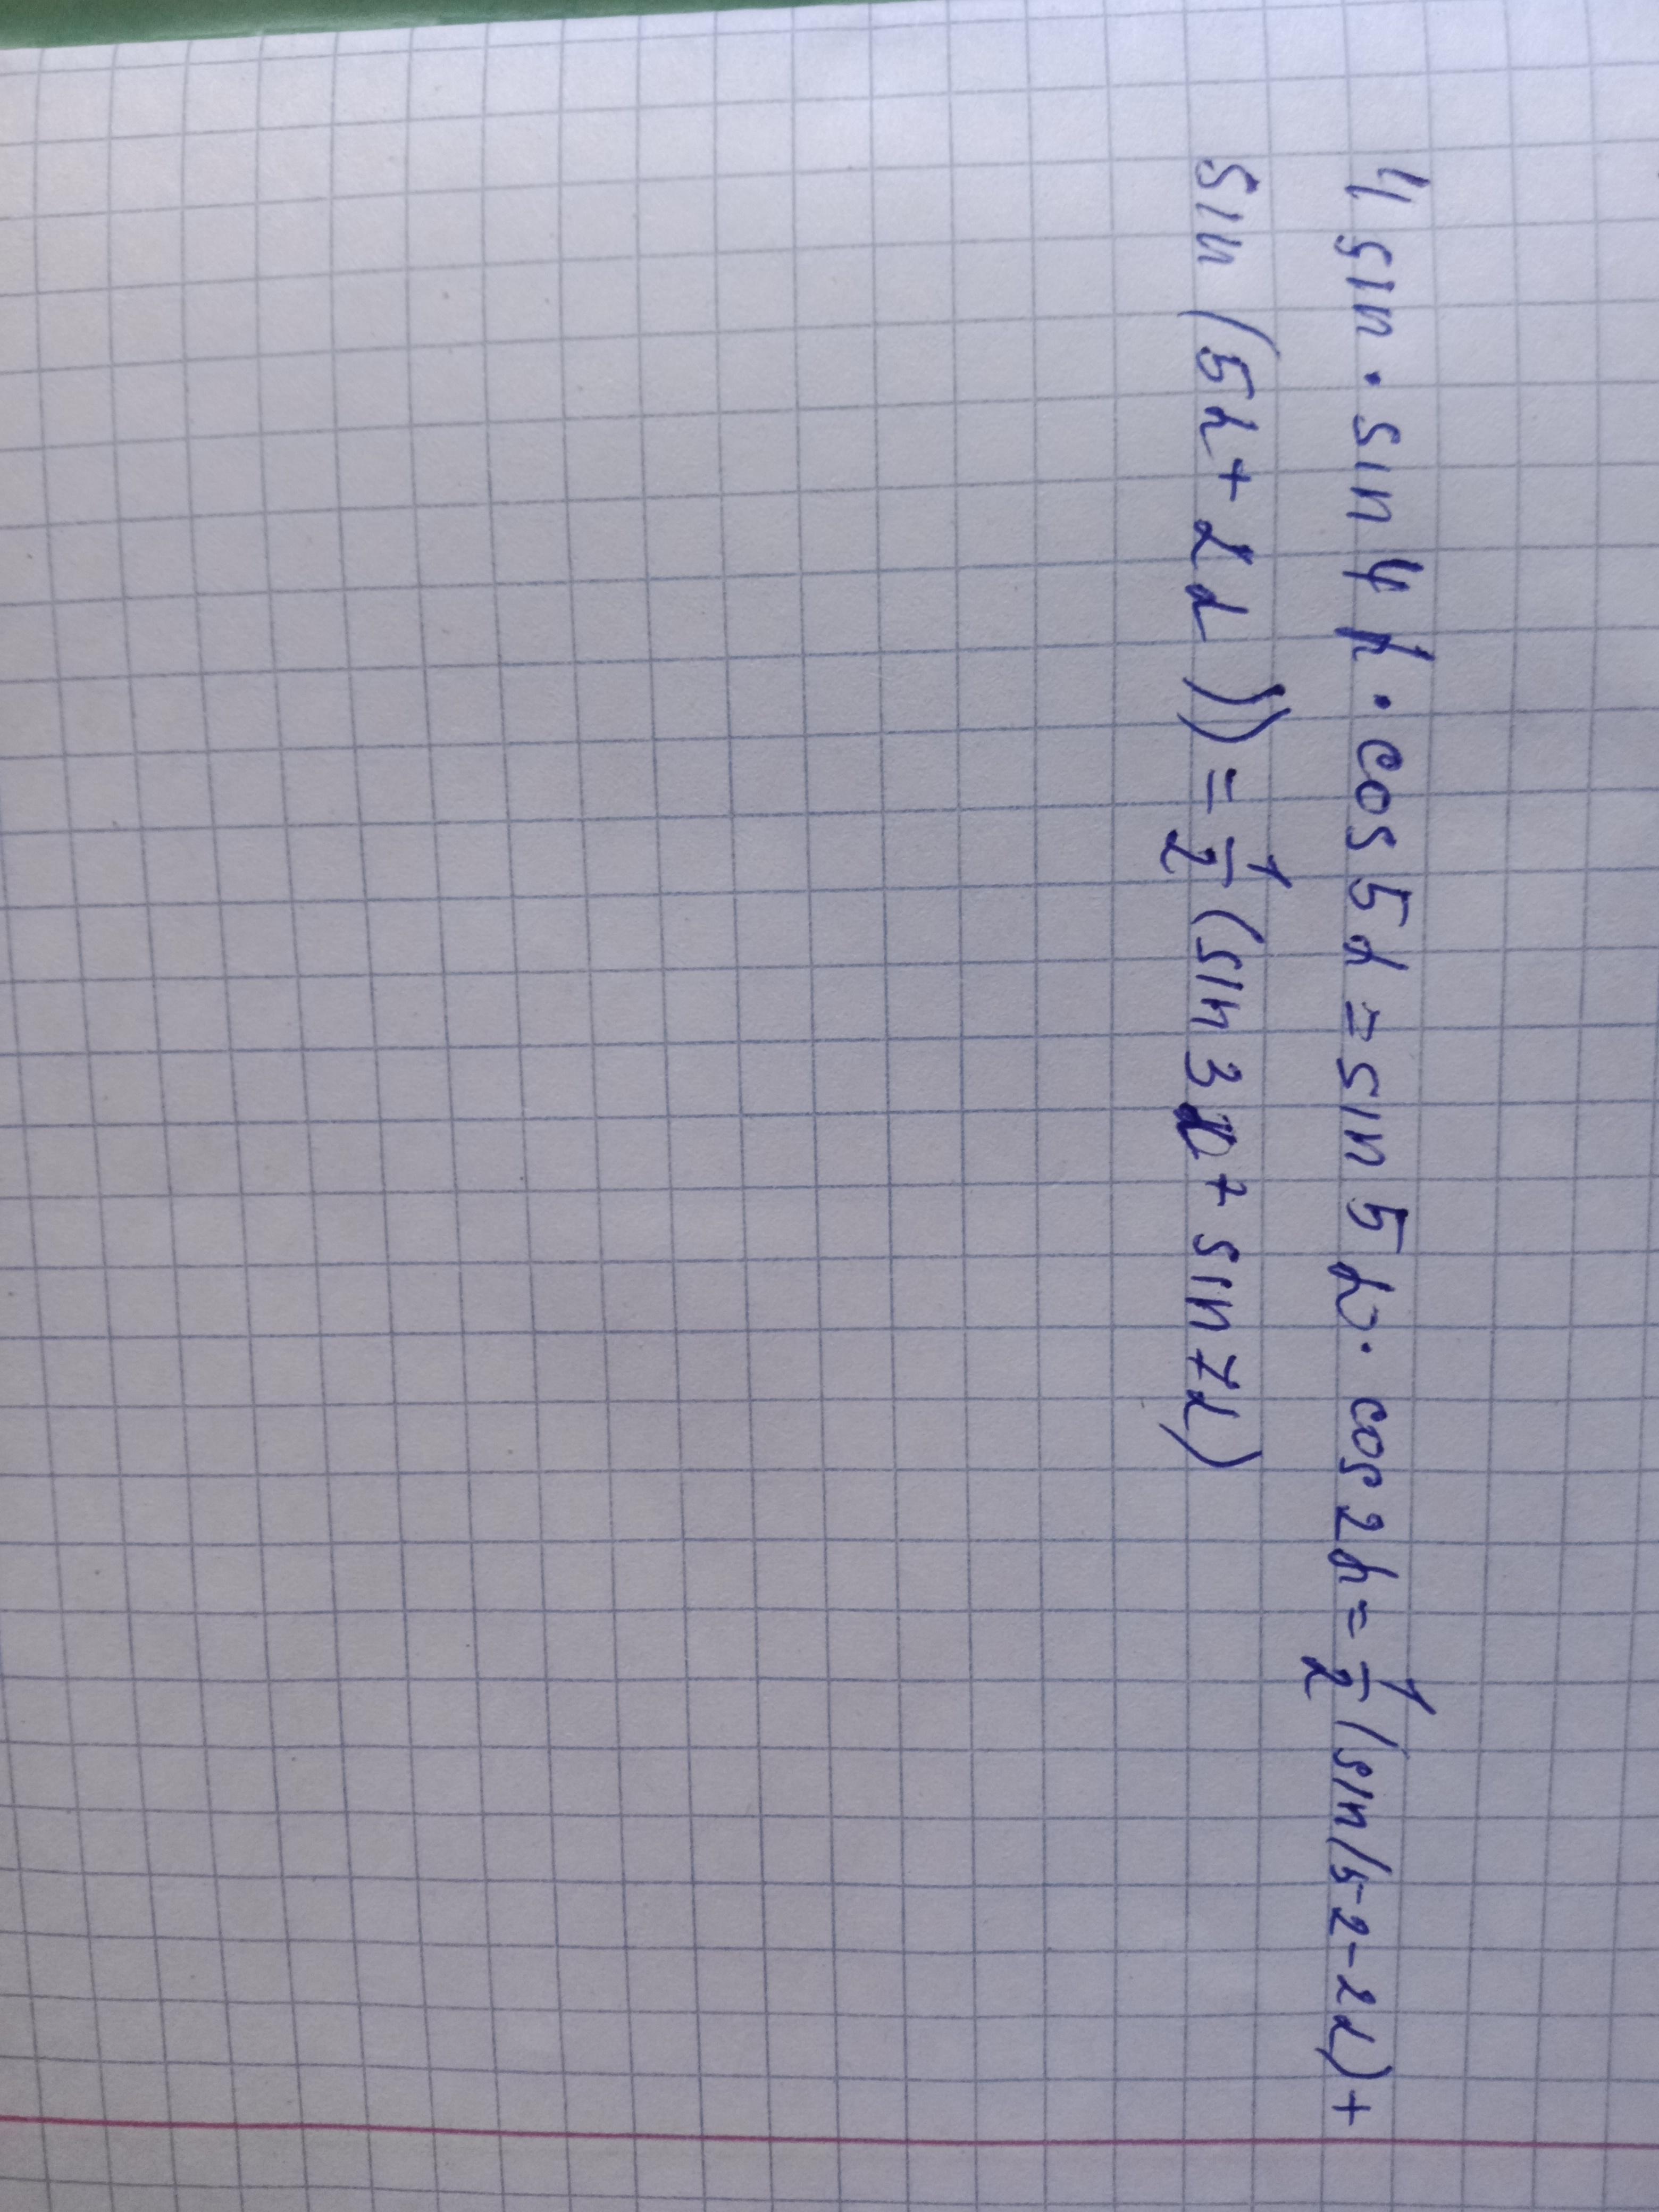 4 sin · sin 4α · cos 5α = sin 5α · cos 2α = 1/2 (sin(5-2-2α) +
sin (5α + 2α)) = 1/2 (sin 3α + sin 7α)